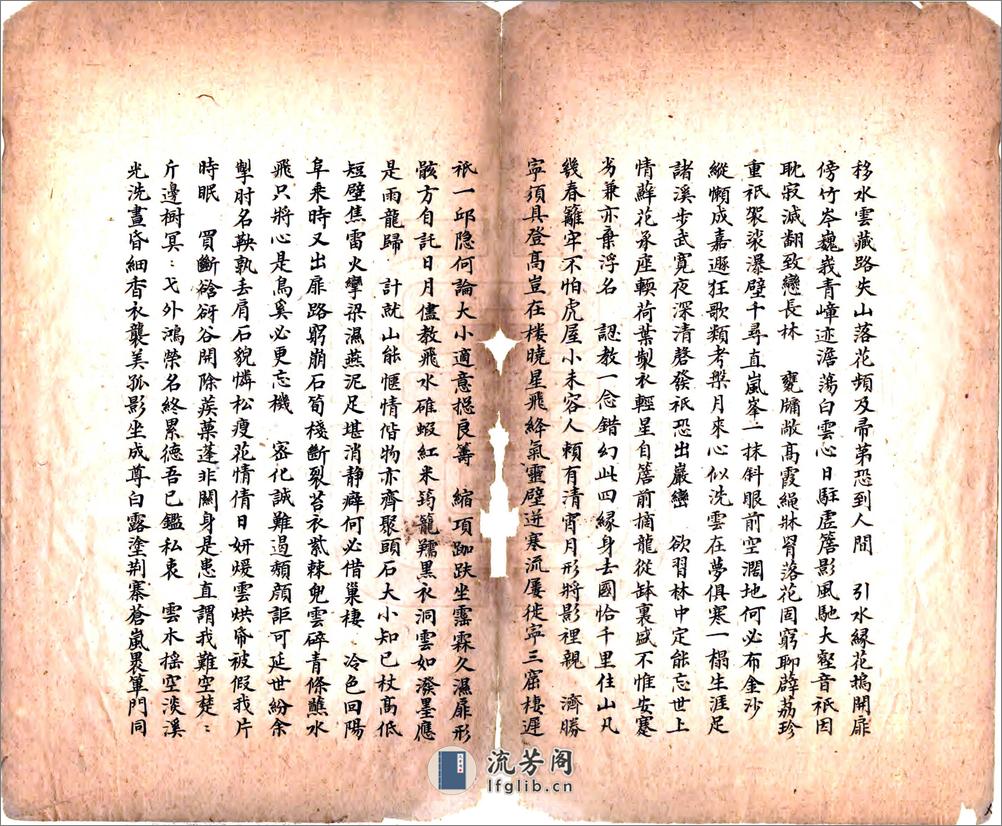 移水雲藏路失山落花頻及帚苐恐到人間　引水縁花塢開扉
傍竹岑巍峩青嶂迹澹蕩白雲心日駐虛簷影風馳大壑音祇因
耽寂滅翻致戀長林　甕牖敞髙霞繩牀胃落花固窮聊辟荔珍
重祇袈裟瀑壁千尋直嵐峯一抹斜眼前空濶地何必布金沙
縱懶成嘉遯狂歌類考槃月來心似洗雲在夢俱寒一榻生涯足
諸溪步武寛夜深清磬發祇恐出巖巒　欲習林中定能忘世上
情蘚花承座輭荷葉製衣輕星自簷前摘龍從鉢裏盛不惟安蹇
劣兼亦棄浮名　認教一念錯幻此四縁身去國恰千里住山凡
幾春籬牢不怕虎屋小未容人頼有清宵月形將影裡親　濟勝
寧須具登髙豈在楼曉星飛絳氣靈壁迸寒流屢徙寧三窟棲遲
祇一邱隐何論大小適意揔良籌　縮項跏趺坐霪霖久濕扉形
骸方自託日月儘教飛水碓蝦紅米筠籠䆉黒衣洞雲如潑墨應
是雨龍歸　計就山能愜情偕物亦齊聚頭石大小知已杖髙低
短壁焦雷火攣梁濕燕泥足堪消静癖何必借巢棲　冷色回陽
阜来時又出扉路窮崩石筍棧斷裂苔衣紫棘兜雲碎青條蘸水
飛只將心是鳥奚必更忘機　容化誠難遏頳顔詎可延世紛余
掣肘名鞅孰去肩石貌憐松瘦花情倩日妍煖雲烘帝被假我片
時眠　買斷谽谺谷開除蒺藜蓬非關身是患直謂我難空楚〻
斤邊樹冥〻弋外鴻榮名終累德吾已鑑私衷　雲木摇空淡溪
光洗晝昏細香衣襲美孤影坐成尊白露塗荆寨蒼嵐褁篳門同
流芳阁
lfglib.cn